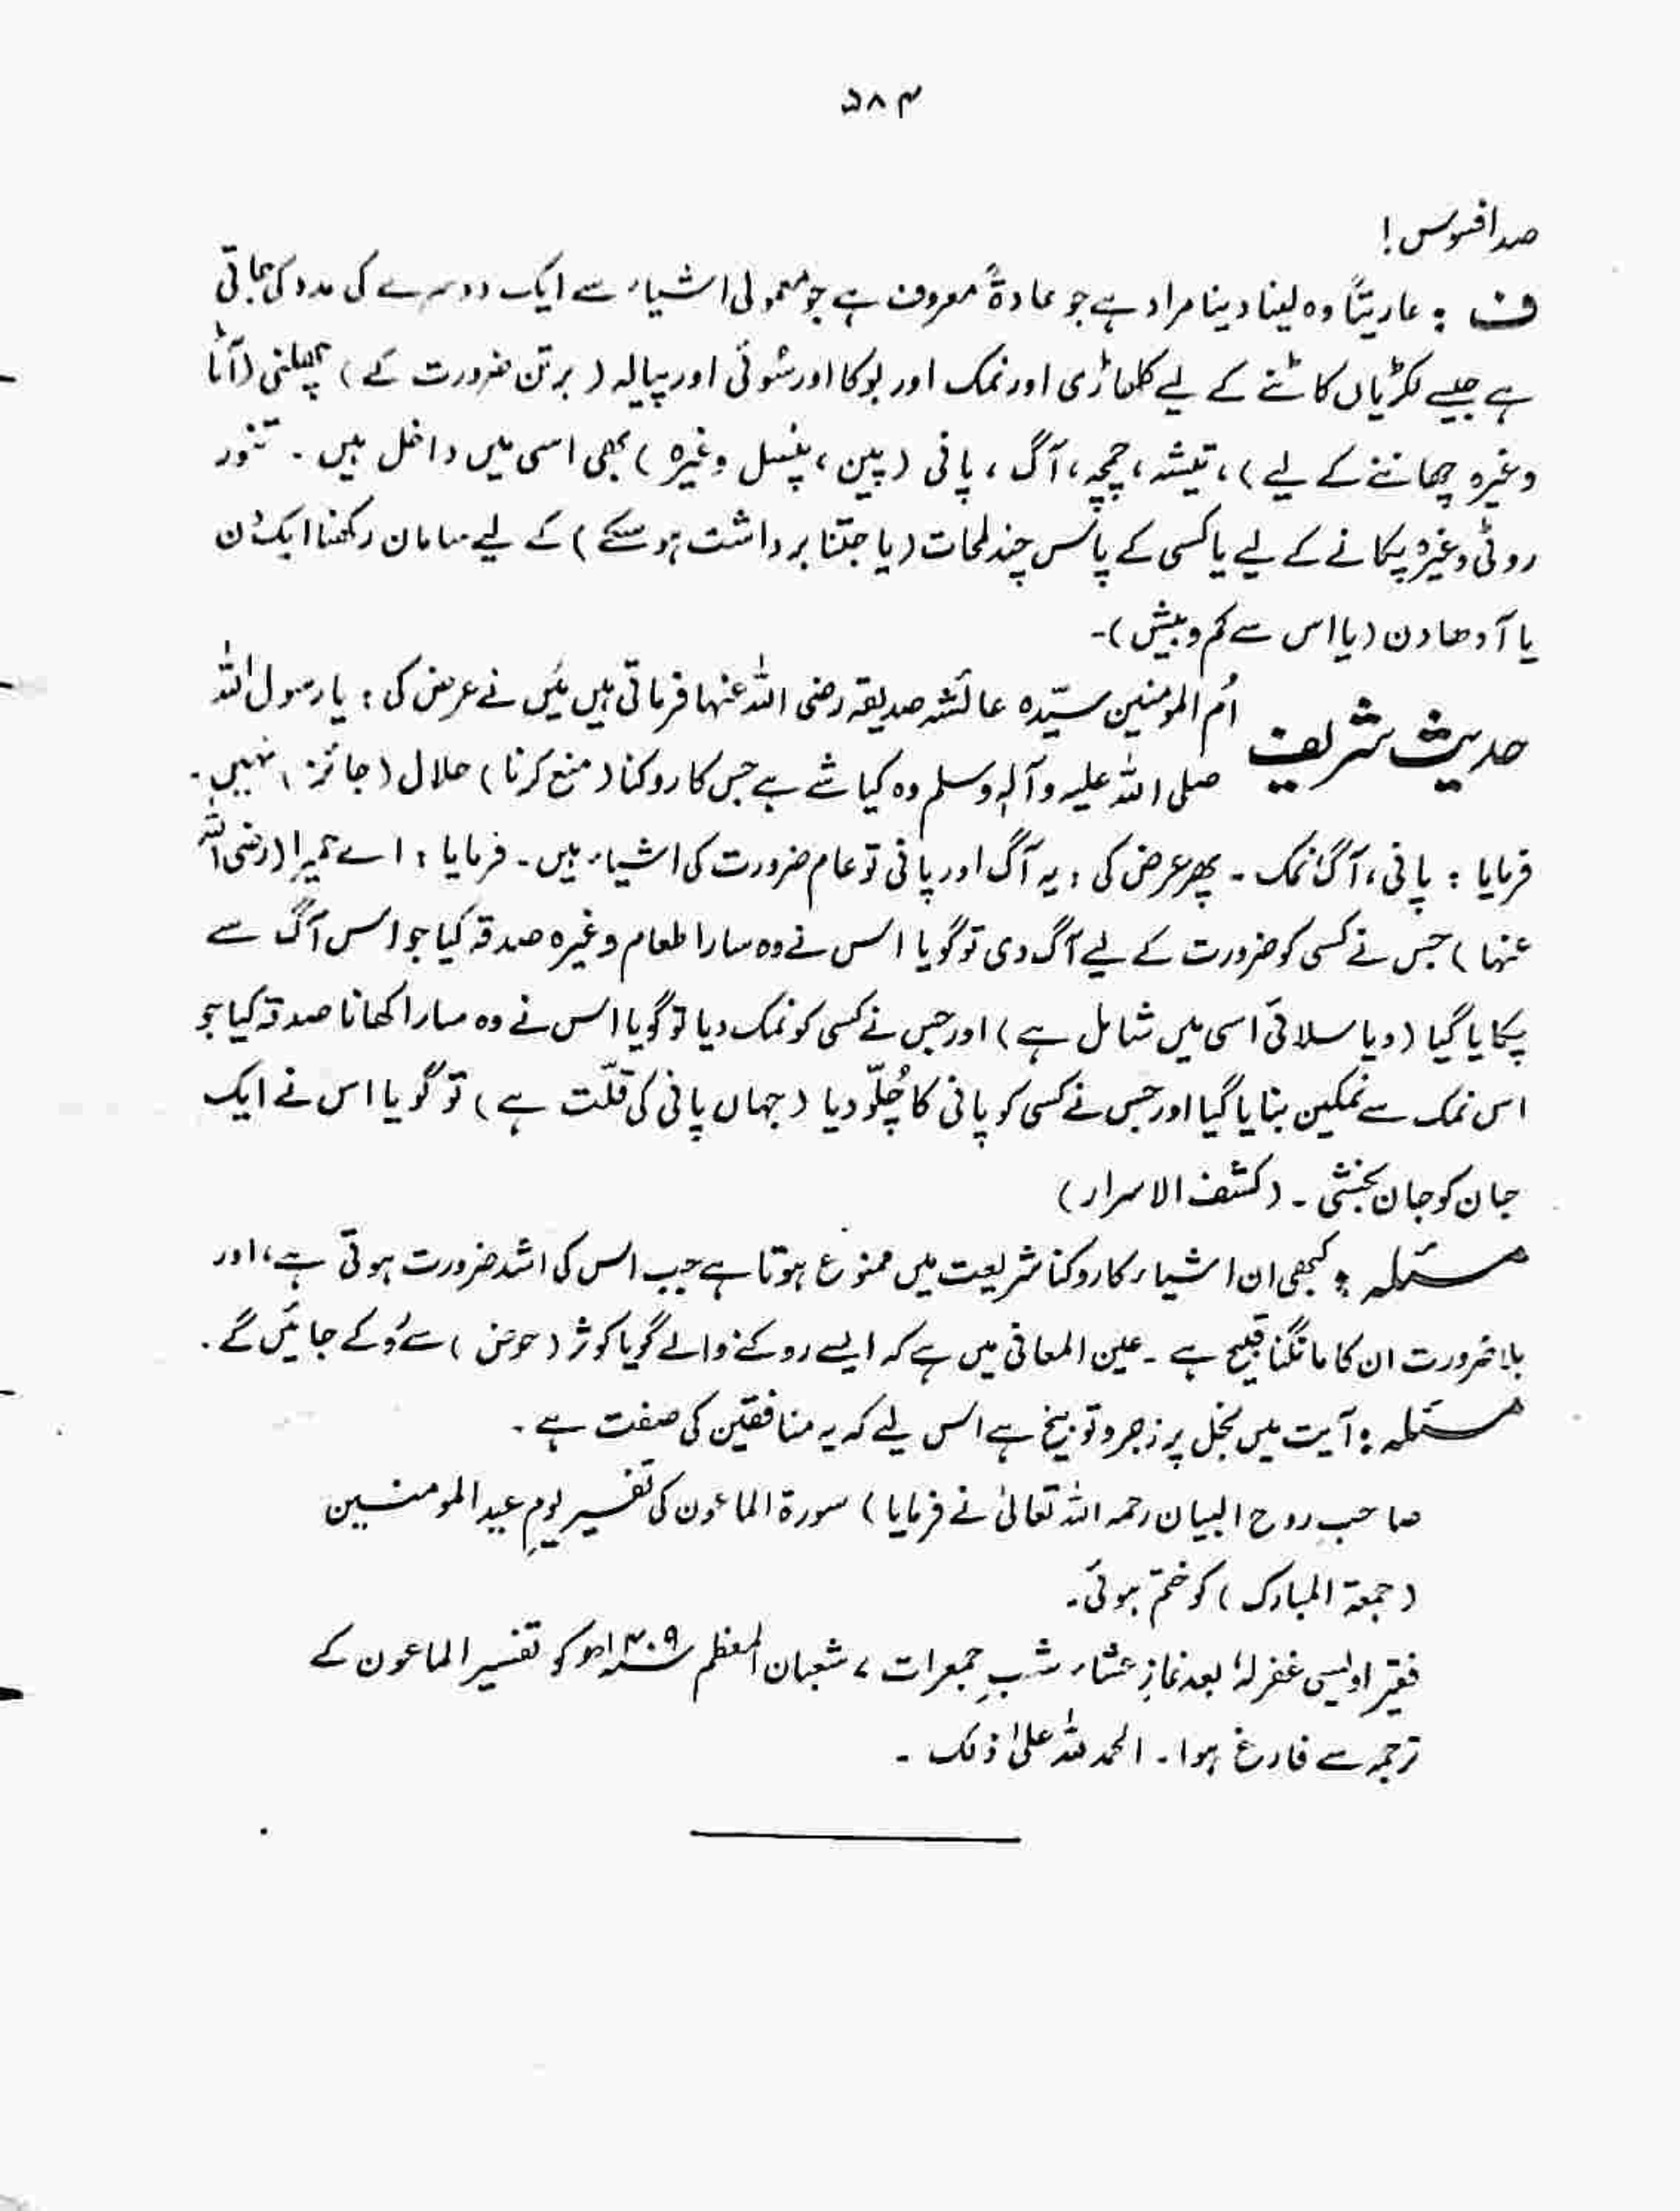 ۵۸۴
صد افسوس !
ف : عاریتًا وہ لینا دینا مراد ہے جو عادۃً معروف ہے جو معمولی اشیاء سے ایک دوسرے کی مدد کی جاتی
ہے جیسے لکڑیاں کاٹنے کے لیے کلھاڑی اور نمک اور بوکا اور سُوئی اور پیالہ ( برتن ضرورت کے ) چھلنی (آٹا
وغیرہ چھاننے کے لیے )، تیشہ ، چمچہ ، آگ ، پانی ( پین ، پنسل وغیرہ ) بھی اسی میں داخل ہیں ۔ تنور
روٹی وغیرہ پکانے کے لیے یا کسی کے پاس چند لمحات ( یا جتنا برداشت ہوسکے ) کے لیے سامان رکھنا ایک دن
یا آدھا دن ( یا اس سے کم و بیش )۔
حدیث شریف اُم المومنین سیّدہ عائشہ صدیقہ رضی اللہ عنہا فرماتی ہیں مَیں نے عرض کی : یا رسول اللہ
صلی اللہ علیہ وآلہٖ وسلم وہ کیا شے ہے جس کا روکنا ( منع کرنا ) حلال ( جائز ) نہیں ۔
فرمایا : پانی ، آگ نمک ۔ پھر عرض کی : یہ آگ اور پانی تو عام ضرورت کی اشیاء ہیں ۔ فرمایا : اے حمیرا (رضی اللہ
عنہا ) جس نے کسی کو ضرورت کے لیے آگ دی تو گویا اس نے وہ سارا طعام وغیرہ صدقہ کیا جو اس آگ سے
پکایا گیا ( دیا سلائی اسی میں شامل ہے ) اور جس نے کسی کو نمک دیا تو گویا اس نے وہ سارا کھانا صدقہ کیا جو
اس نمک سے نمکین بنایا گیا اور جس نے کسی کو پانی کا چُلّو دیا ( جہاں پانی کی قلّت ہے ) تو گویا اس نے ایک
جان کو جان بخشی ۔ ( کشف الاسرار )
مسئلہ : کبھی ان اشیاء کا روکنا شریعت میں ممنوع ہوتا ہے جب اس کی اشد ضرورت ہوتی ہے ، اور
بلا ضرورت ان کا مانگنا قبیح ہے ۔ عین المعانی میں ہے کہ ایسے روکنے والے گویا کوثر ( حوض ) سے روکے جائیں گے ۔
مسئلہ : آیت میں بخل پر زجر و توبیخ ہے اس لیے کہ یہ منافقین کی صفت ہے ۔
صاحب روح البیان رحمہ اللہ تعالیٰ نے فرمایا ) سورۃ الماعون کی تفسیر یومِ عید المومنین
( جمعۃ المبارک ) کو ختم ہوئی ۔
فقیر اویسی غفرلہٗ بعد نمازِ عشاء شبِ جمعرات ۷ شعبان المعظم ۱۴۰۹ھ کو تفسیر الماعون کے
ترجمہ سے فارغ ہوا ۔ الحمد للہ علیٰ ذٰلک ۔